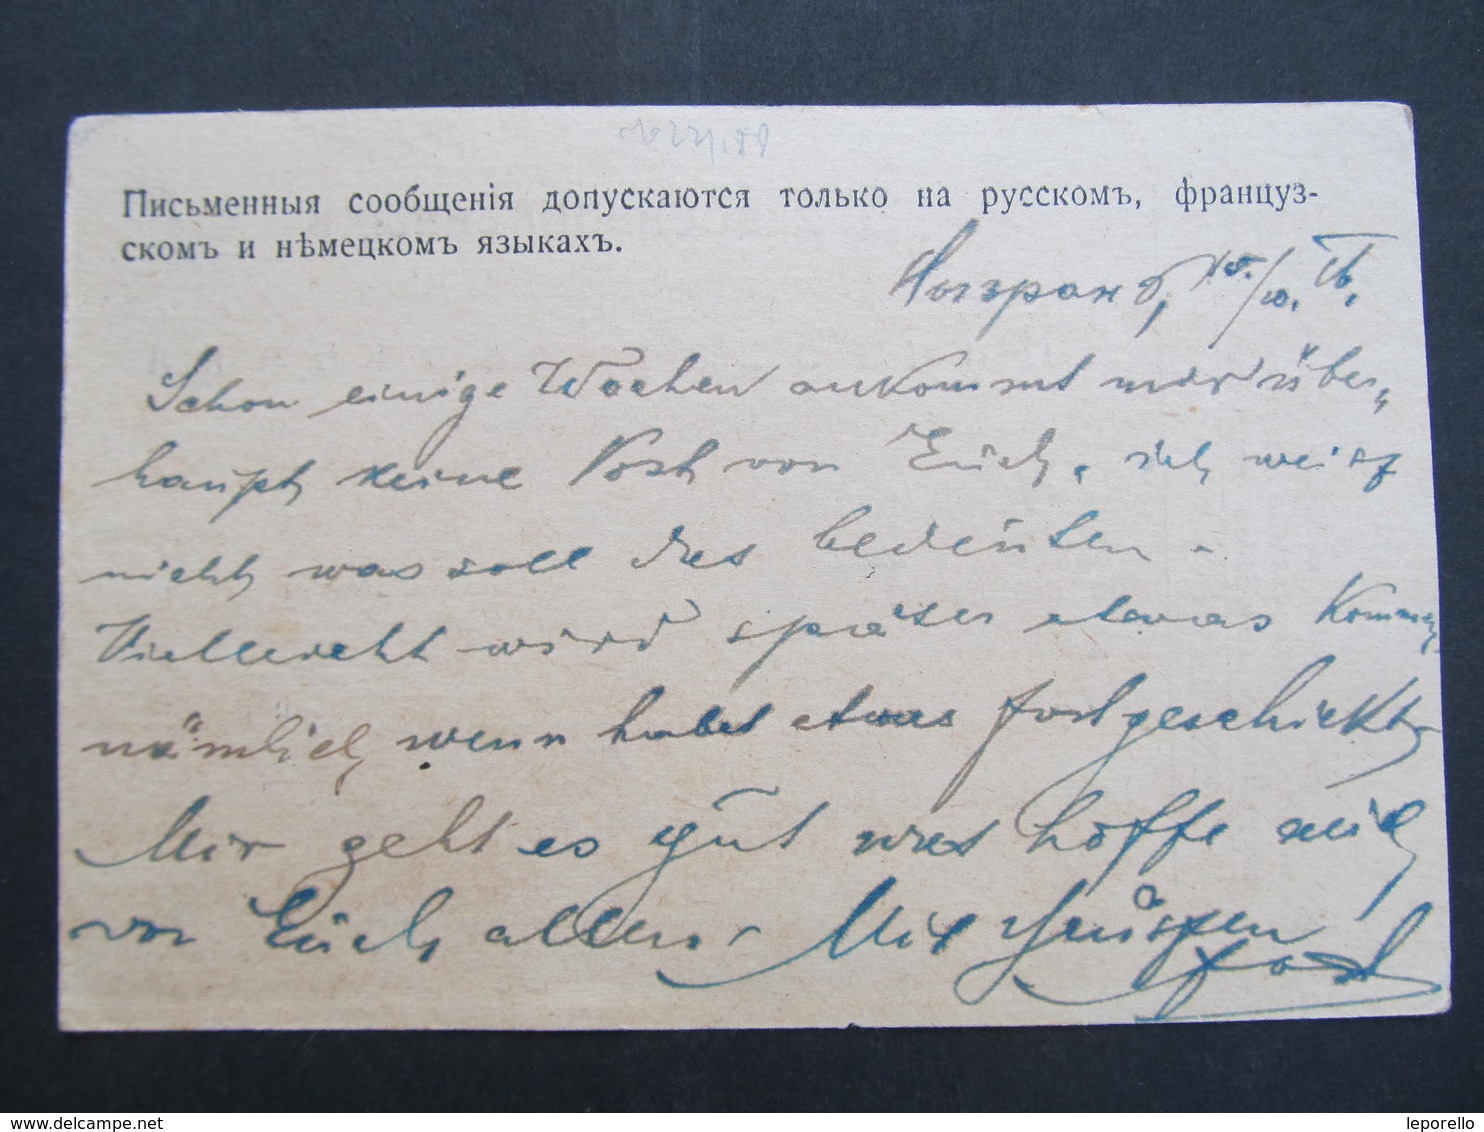 Письменныя сообщенія допускаются только на русскомъ, француз-
скомъ и нѣмецкомъ языкахъ.
Schon einige Wochen ankommt mir über„
haupt keine Post von Euch, ich weisz
nicht was soll das bedeuten.
Vielleicht wird später etwas kommen
nämlich wenn habet etwas fortgeschickt
Mir geht es gut was hoffe auch
von Euch allen. Mit Grüszen
leporello